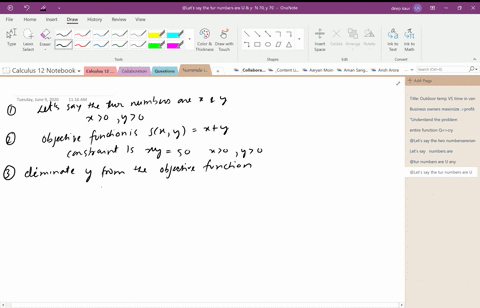 @Let's say the tur numbers are U & y N 70, y 70 - OneNote
deep kaur
File Home Insert Draw View Help
Type Lasso Select Eraser
Color & Thickness Draw with Touch
Insert Space
Ink to Text Ink to Math
Tools Shapes Edit Convert
Calculus 12 Notebook
Calculus 12 Collaboration Questions
Collabora... _Content Li... Aaryan Moin Aman Sang... Ansh Arora
Search (Ctrl+E)
Add Page
Tuesday, June 9, 2020 11:36 AM
① Let's say the two numbers are x & y
x>0, y>0
② Objective function is S(x, y) = x+y
constraint is xy = 50 x>0, y>0
③ eliminate y from the objective function
Title: Outdoor temp VS time in van
Business owners maximize
"Understand the problem
@Let's say the two
Let's say numbers are
@Let's say the tur numbers are U